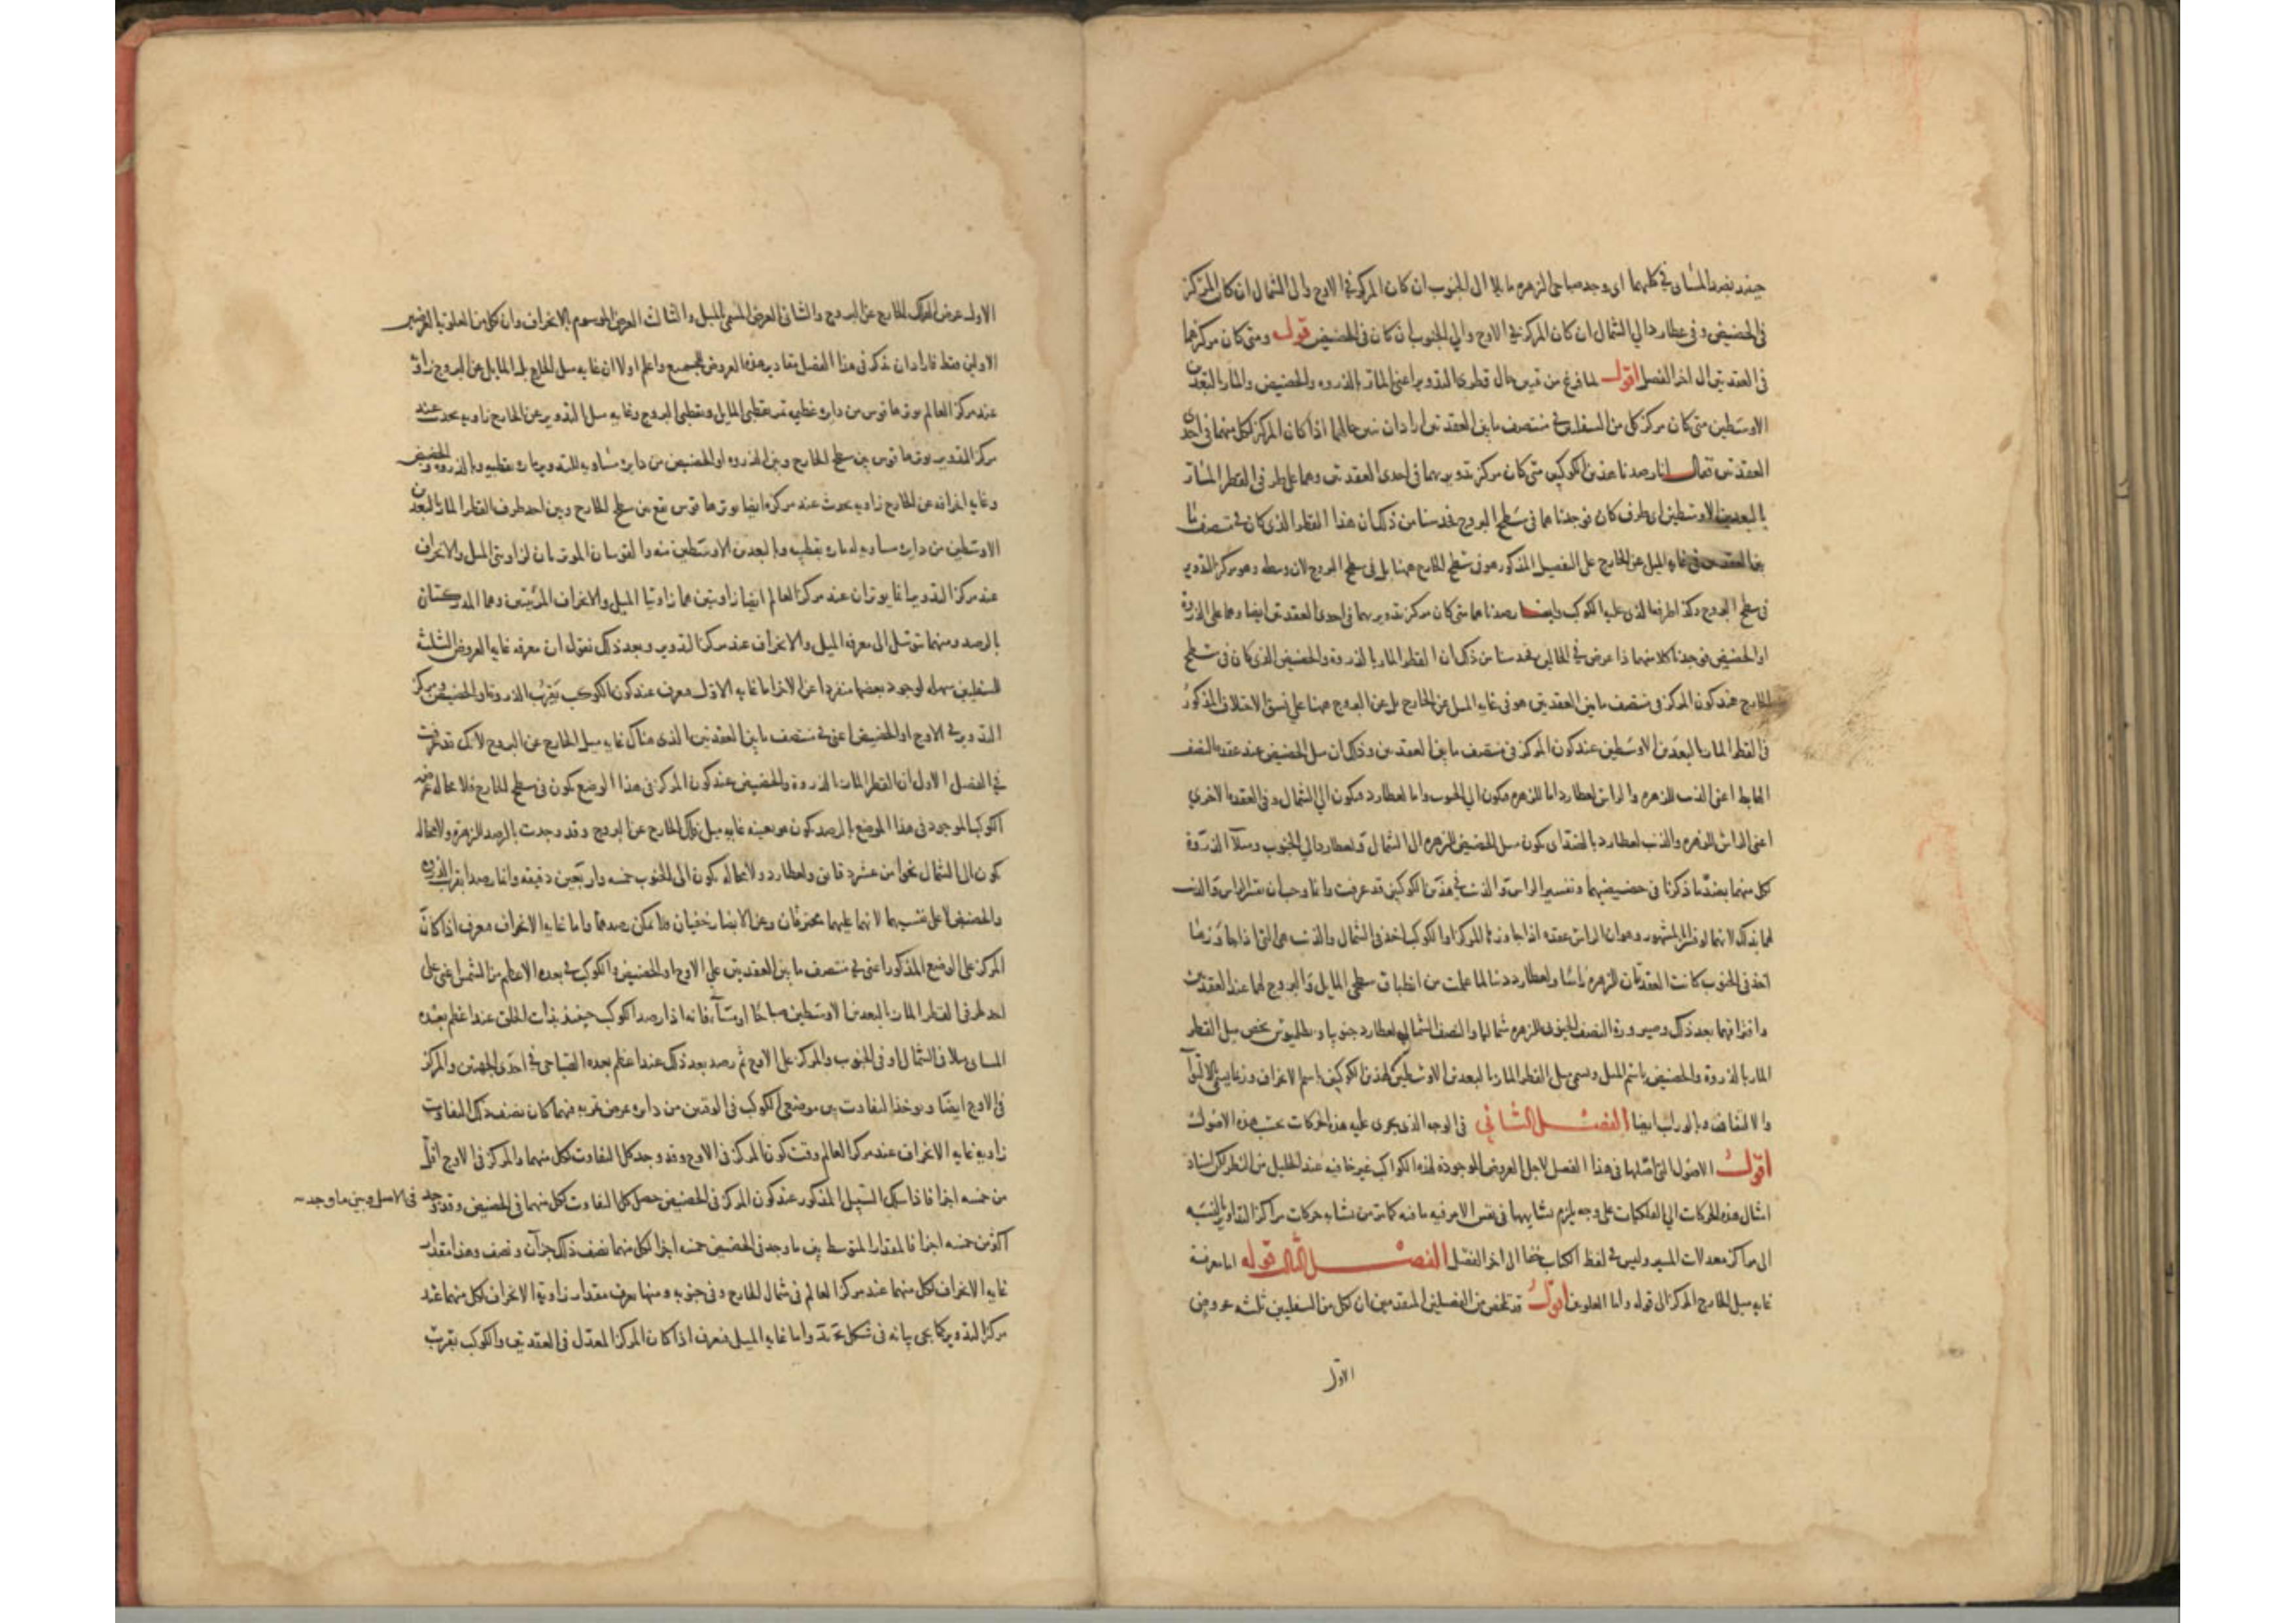 حينئذ بضد المسائى فى كليهما اى وجد صباحى الزهره مايلا الى الجنوب ان كان المركز فى الاوج والى الشمال ان كان المركز
فى الحضيض وفى عطارد الى الشمال ان كان المركز فى الاوج والى الجنوب ان كان فى الحضيض قوله ومتى كان مركزهما
فى العقدتين الى اخر الفصل اقول لما فرغ من تبيين حال قطرى التدوير اعنى المار بالذروه والحضيض والمار بالبعدين
الاوسطين متى كان مركز كل من السفليين فى منتصف ما بين العقدتين اراد ان نبين حالهما اذا كان المركز لكل منهما فى احدى
العقدتين فقال انا رصدنا هذين الكوكبين متى كان مركز تدويريهما فى احدى العقدتين وهما على طرفى القطر المار
بالبعدين الاوسطين اى طرف كان فوجدناهما فى سطح البروج فحدسنا من ذلك ان هذا القطر الذى كان فى منتصف ما
بين العقدتين فى غايه الميل عن الخارج على التفصيل المذكور هو فى سطح الخارج ههنا بل فى سطح البروج لان وسطه وهو مركز التدوير
فى سطح البروج وكذا طرفها الذى عليه الكوكب وايضا رصدناهما متى كان مركز تدويريهما فى احدى العقدتين ايضا وهما على الذروة
او الحضيض فوجدنا كلا منهما ذا عرض فى الحالين فحدسنا من ذلك ان القطر المار بالذروة والحضيض الذى كان فى سطح
الخارج عند كون المركز فى منتصف ما بين العقدتين هو فى غايه الميل عن الخارج بل عن البروج ههنا على نسق الاختلاف المذكور
فى القطر المار بالبعدين الاوسطين عند كون المركز فى منتصف ما بين العقدتين وذلك ان ميل الحضيض عند عقده النصف
الهابط اعنى الذنب للزهره والراس لعطارد اما للزهره فيكون الى الجنوب واما لعطارد فيكون الى الشمال وفى العقدة الاخرى
اعنى الراس للزهره والذنب لعطارد بالضد اى يكون ميل الحضيض للزهره الى الشمال ولعطارد الى الجنوب وميلا الذروة
لكل منهما بضد ما ذكرنا فى حضيضيهما وتفسير الراس والذنب فى هذين الكوكبين قد عرفت وانما وجب ان يفسر الراس والذنب
لهما بذلك لانهما لو فسرا بالمشهور وهو ان الراس عقده اذا جاوزها المركز او الكوكب اخذ فى الشمال والذنب هى التى اذا جاوزها
اخذ فى الجنوب كانت العقدتان للزهره راسا ولعطارد ذنبا لما علمت من انطباق سطحى المايل والبروج لهما عند العقدتين
وافتراقهما بعد ذلك وصيرورة النصف الجنوبى للزهره شماليا والنصف الشمالى لعطارد جنوبيا وبطلميوس يخص ميل القطر
المار بالذروة والحضيض باسم الميل ويسمى ميل القطر المار بالبعدين الاوسطين لهذين الكوكبين باسم الانحراف وربما يسمى الالتوآ
والالتفاف وبالوراب ايضا الفصل الثانى فى الوجه الذى يجرى عليه هذه الحركات بحسب هذه الاصول
اقول الاصول التى اصلها فى هذا الفصل لاجل العروض الموجودة لهذه الكواكب غير خافيه عند الجليل من النظر لكن اسناد
امثال هذه الحركات الى الفلكيات على وجه يلزم تشابهها فى نفس الامر فيه ما فيه كما مر من تشابه حركات مراكز التداوير بالنسبه
الى مراكز معدلات المسير وليس فى لفظ الكتاب خفا الى اخر الفصل الفصل الثالث قوله اما معرفة
غايه ميل الخارج المركز الى قوله واما العلويه اقول قد تلخص من الفصلين المتقدمين ان لكل من السفليين ثلثه عروض
الاول
الاول عرض الفلك الخارج عن البروج والثانى العرض المسمى بالميل والثالث العرض الموسوم بالانحراف وان لكل من العلويه العرضين
الاولين فقط فاراد ان يذكر فى هذا الفصل مقادير هذه العروض للجميع واعلم اولا ان غايه ميل الخارج بل المايل عن البروج زاوية
عند مركز العالم يوترها قوس من دايره عظيمه تمر بقطبى المايل وبقطبى البروج وغايه ميل التدوير عن الخارج زاويه يحدث عند
مركز التدوير يوترها قوس بين سطح الخارج وبين الذروه او الحضيض من دايره مساويه للتدوير ماره بقطبيه وبالذروه والحضيض
وغايه انحرافه عن الخارج زاويه يحدث عند مركزه ايضا يوترها قوس تقع بين سطح الخارج وبين احد طرفى القطر المار بالبعدين
الاوسطين من دايره مساويه له ماره بقطبيه وبالبعدين الاوسطين منه والقوسان الموترتان لزاويتى الميل والانحراف
عند مركز التدوير انما يوتران عند مركز العالم ايضا زاويتين هما زاويتا الميل والانحراف المرئيتين وهما المدركتان
بالرصد ومنهما يتوسل الى معرفه الميل والانحراف عند مركز التدوير وبعد ذلك نقول ان معرفه غايه العروض الثلثه
للسفليين سهله لوجود بعضها منفردا عن الاخر اما غايه الاول فيعرف عند كون الكوكب بقرب الذروة او الحضيض ومركز
التدوير فى الاوج او الحضيض اعنى فى منتصف ما بين العقدتين الذى هناك غايه ميل الخارج عن البروج لانك قد عرفت
فى الفصل الاول ان القطر المار بالذروة والحضيض عند كون المركز فى هذا الوضع يكون فى سطح الخارج فلا محاله عرض
الكوكب الموجود فى هذا الموضع بالرصد يكون هو بعينه غايه ميل فلك الخارج عن البروج وقد وجدت بالرصد للزهره ولا محاله
يكون الى الشمال نحوا من عشر دقايق ولعطارد ولا محاله يكون الى الجنوب خمسه واربعين دقيقه وانما رصدا بقرب الذروه
والحضيض لا على نفسيهما لانهما عليهما محترقان وعن الابصار خفيان فلا يمكن رصدهما واما غايه الانحراف فيعرف اذا كان
المركز على الوضع المذكور اعنى فى منتصف ما بين العقدتين على الاوج او الحضيض والكوكب فى بعده الاعظم من الشمس اعنى على
احد طرفى القطر المار بالبعدين الاوسطين صباحا او مسآ فانه اذا رصد الكوكب حينئذ بذات الحلق عند اعظم بعده
المسائى مثلا فى الشمال او فى الجنوب والمركز على الاوج ثم رصد بعد ذلك عند اعظم بعده الصباحى فى احدى الجهتين والمركز
فى الاوج ايضا ويوخذ التفاوت بين موضعى الكوكب فى الوقتين من دايره عرض تمر به فيهما كان نصف ذلك التفاوت
زاويه غايه الانحراف عند مركز العالم وقت كون المركز فى الاوج وقد وجد كل التفاوت لكل منهما والمركز فى الاوج اقل
من خمسه اجزا فاذا سلك السبيل المذكور عند كون المركز فى الحضيض حصل كل التفاوت لكل منهما فى الحضيض وقد وجد
فى الاصل وبين ما وجد
اكثر من خمسه اجزا فالمقدار المتوسط بين ما وجد فى الحضيض خمسه اجزا لكل منهما نصف ذلك جزآن ونصف وهذا مقدار
غايه الانحراف لكل منهما عند مركز العالم فى شمال الخارج وفى جنوبه ومنها يعرف مقدار زاوية الانحراف لكل منهما عند
مركز التدوير كما يجى بيانه فى شكل نحرره واما غايه الميل فيعرف اذا كان المركز المعدل فى العقدتين والكوكب بقرب